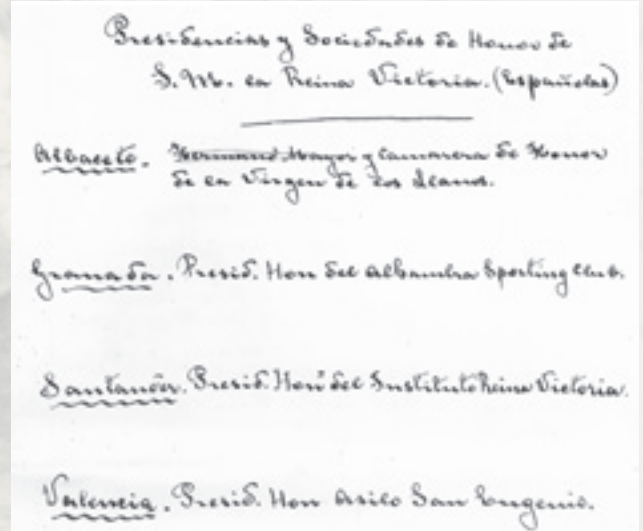 Presidencias y Sociedades de Honor de
S. M. la Reina Victoria. (Españolas)
Albacete. Hermana Mayor y Camarera de Honor
de la Virgen de los Llanos.
Granada. Presid. Hon del Alhambra Sporting Club.
Santander. Presid. Honº del Instituto Reina Victoria.
Valencia. Presid. Hon Asilo San Eugenio.